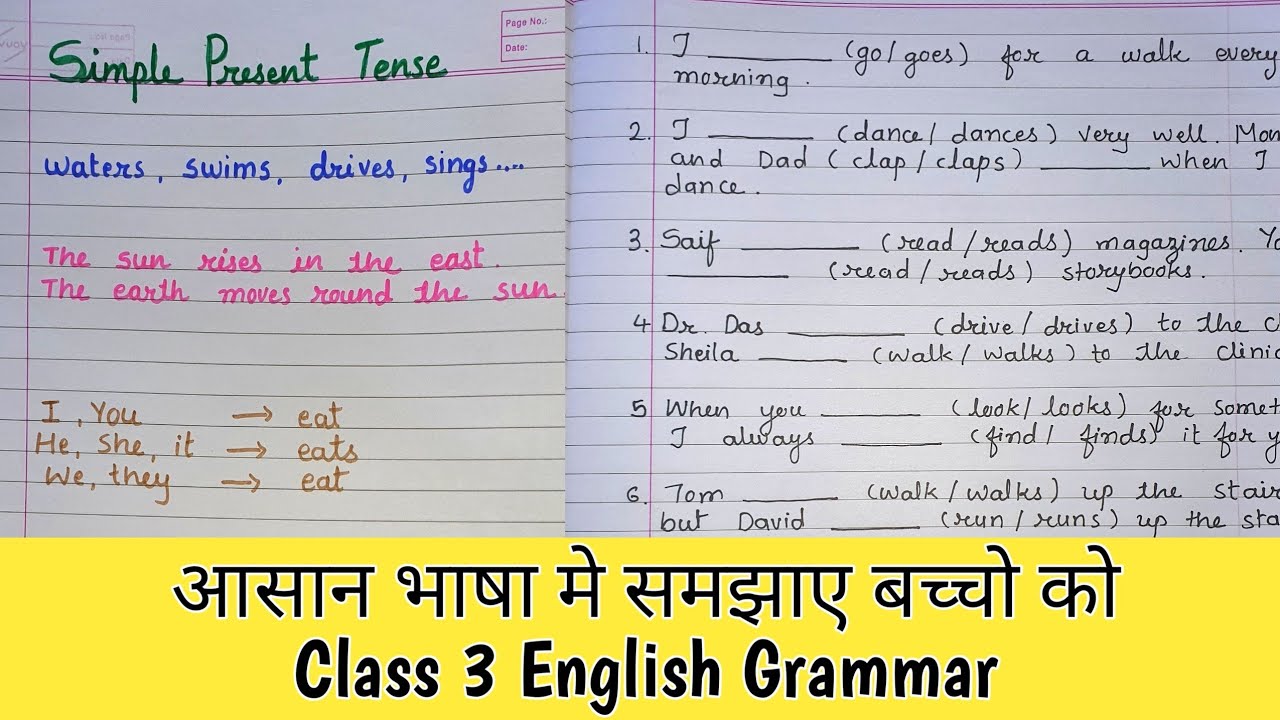 Simple Present Tense
Page No.:
Date:
waters, swims, drives, sings....
The sun rises in the east.
The earth moves round the sun.
I, You → eat
He, She, it → eats
We, they → eat
1. I ________ (go/goes) for a walk every
morning.
2. I ________ (dance/dances) very well. Mom
and Dad (clap/claps) ________ when I
dance.
3. Saif ________ (read/reads) magazines.
________ (read/reads) storybooks.
4 Dr. Das ________ (drive/drives) to the
Sheila ________ (walk/walks) to the clinic
5 When you ________ (look/looks) for
I always ________ (find/finds) it for
6. Tom ________ (walk/walks) up the stair
but David ________ (run/runs) up the
आसान भाषा मे समझाए बच्चो को
Class 3 English Grammar